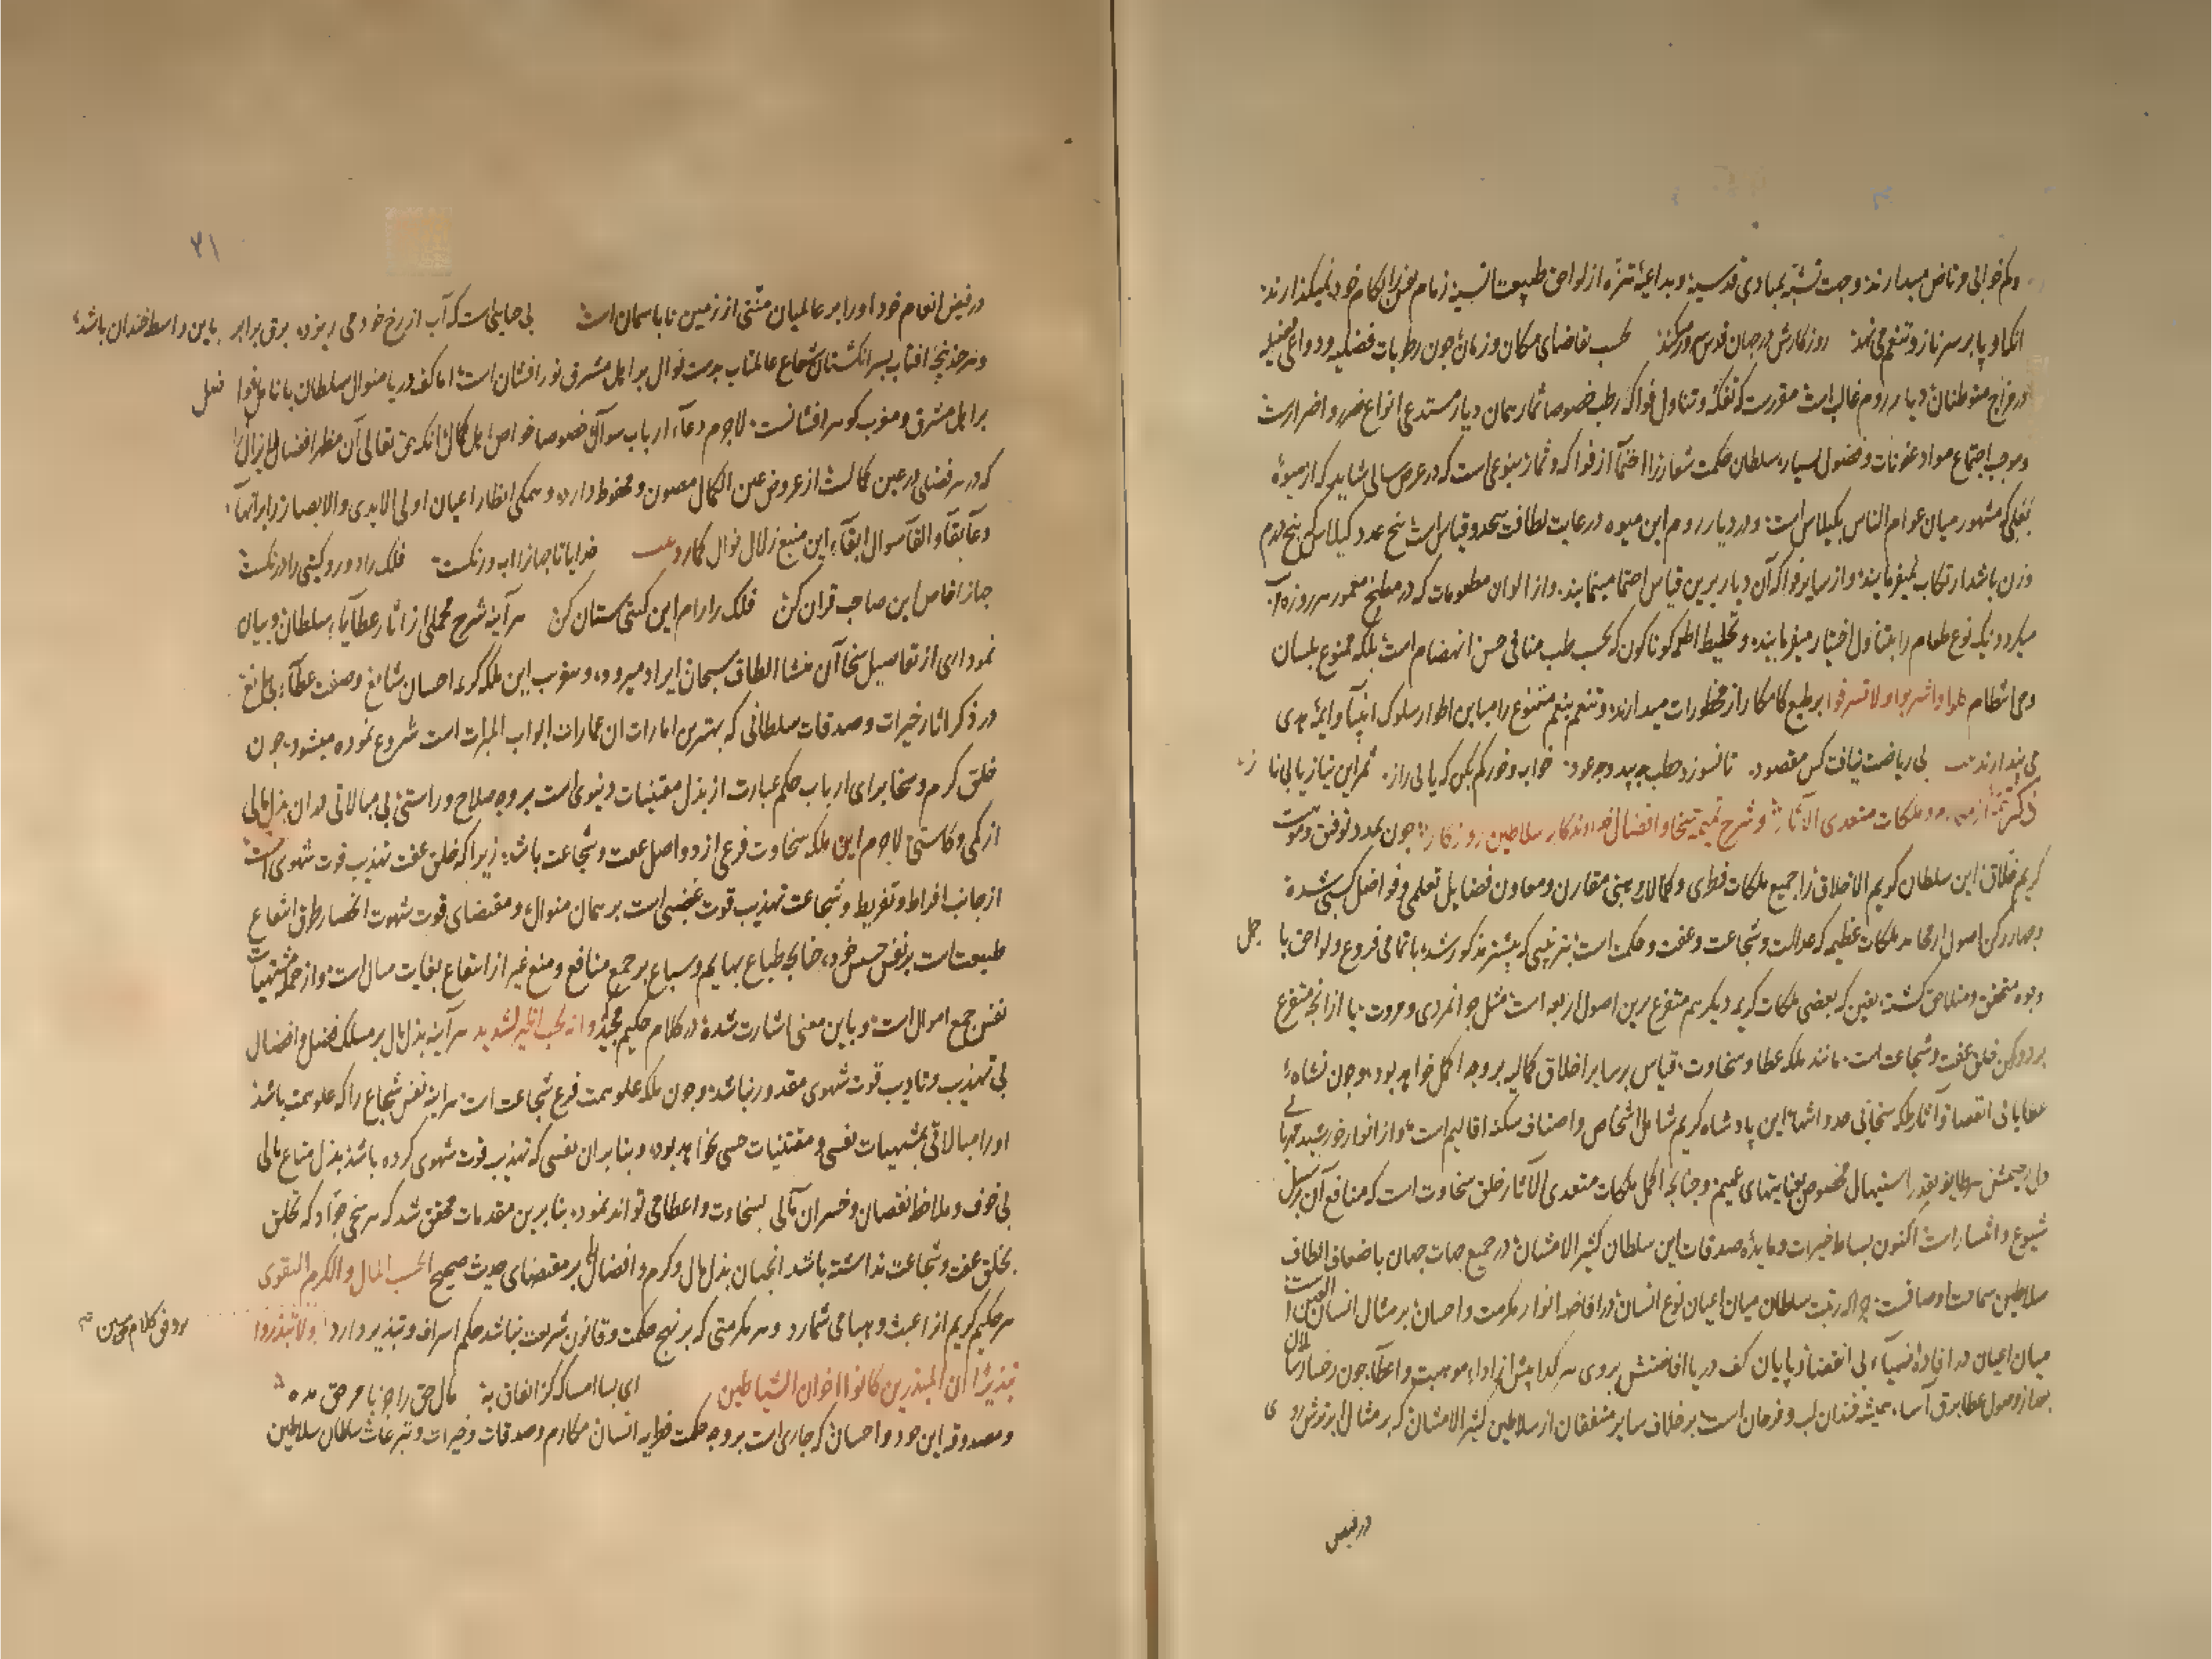 وکم خوابی و ناض میدارند و جهت تشبّه بمبادی قدسیه و بداعیهٔ تنزّه از لواحق طبیعت انسیه زمام نفس را بکام خود نمیگذارند
انکه او پا بر سر ناز و تنعم می نهد روزکارش در جهان قدس سرور میکند بحسب تقاضای مکان و زمان چون رطوبات فضلیه و دواعی
در مزاج متوطنان دیار روم غالب است مقررست که تفکه و تناول فواکه رطب خصوصا ثمار همان دیار مستدعی انواع ضرر و اضرارست
و موجب اجتماع مواد عفونات و فضول بسیار سلطان حکمت شعار را احتما از فواکه و ثمار بنوعی است که در عرض سالی شاید که از میوهٔ
که مشهور میان عوام الناس بکیلاس است و در دیار روم این میوه در غایت لطافت بیحد و قیاس است پنج عدد کیلاس که پنج درم
وزن باشد ارتکاب نمیفرمایند و از سایر فواکه آن دیار برین قیاس احتما مینمایند و از الوان مطعومات که در مطبخ معمور هر روزه
میکردد یک نوع طعام را بتناول اختیار میفرمایند و تخلیط اطعمه کوناکون که بحسب طب منافی حسن انهضام است بلکه ممنوع بلسان
وحی انتظام کلوا واشربوا ولا تسرفوا بر طبع کامکار از محظورات میدارند و تنعم بنعم متنوع را مباین اطوار سلوک انبیا و ایمهٔ هدی
می پندارند بی ریاضت نیافت کس مقصود تا نسوزد حطب چه بید و چه عود خواب و خور کم بکن که یابی راز ثمر این نیاز یابی ناز
ملکات متعدی الآثار و شرح سخا و افضال خداوندکار سلاطین روزکار چون بمدد توفیق و موهبت
کریم خلاق این سلطان کریم الاخلاق را جمیع ملکات فطری و کمالات مقارن و معاون فضایل تعلمی و فواضل کسبی شده
و چهار رکن اصول ملکات عظیمه که عدالت و شجاعت و عفت و حکمت است بترتیبی که پیشتر مذکور شد با تمامی فروع و لواحق با جمل
وجوه متحقق و متلاحق کشته یقین که بعضی ملکات کریمه دیکر هم متفرع برین اصول اربعه است مثل جوانمردی و مروت یا از انجه متفرع
بر دو رکن خلق عفت و شجاعت است مانند ملکه عطا و سخاوت قیاس بر سایر اخلاق کمالیه بر وجه اکمل خواهد بود و چون نشاهٔ
عطایای و آثار ملکه سخای این پادشاه کریم شامل اشخاص و اصناف سکنه اقالیم است و از انوار خورشید
بقدر استیهال مخصوص بعنایتهای عمیم و چنانچه اکمل ملکات متعدی الآثار خلق سخاوت است که منافع آن بر سبیل
شیوع و انتشار است اکنون بساط خیرات و مایدهٔ صدقات این سلطان کثیر الامتنان در جمیع جهات جهان باضعاف الطاف
سلاطین است چرا که رتبت سلطان میان اعیان نوع انسان در افاضه انوار مکرمت و احسان بر مثال انسان العین است
میان اعیان کف دریا افاضتش بروی هر کدا پیش از اداء موهبت و اعطا چون رخسار
وصول عطا برق آسا همیشه خندان لب و فرحان است بر خلاف سایر منفقان از سلاطین کثیر الامتنان که بر مثال
در فیض
۲۱
در فیض انعام خود او را بر عالمیان منتی از زمین تا باسمان است بی حیایی است که آب از رخ خود می ریزد برق برابر باین واسطه خندان باشد
و هر چند پنجهٔ افتاب بسر انکشتان شعاع عالمتاب بدست نوال بر اهل مشرق نور افشان است اما کف دریا منوال سلطان با نامل فضل
بر اهل مشرق و مغرب کوهر افشانست لاجرم دعاء ارباب سوآل خصوصا خواص اهل کمال انکه حق تعالی آن مظهر افضال
که در هر فضلی در عین کمالست از عروض عین الکمال مصون و محفوظ دارد و همکی انظار اعیان اولی الایدی والابصار
دعا بقآ و القآ سوال ابقآء این منبع زلال نوال کمارد خدایا تا جهانرا آب و رنکست فلک را دور و کیتی را درنکست
جهانرا خاص این صاحب قران کن فلک را رام این کیتی ستان کن هر آینه شرح مجملی از آثار عطایاء سلطان و بیان
نموداری از تفاصیل سخا آن منشا الطاف سبحان ایراد میرود و معقب این ملکه کریمه احسان شایع و صفت عطآء
در ذکر اثار خیرات و صدقات سلطانی که بهترین امارات ان عمارات ابواب المبرات است شروع نموده میشود چون
خلق کرم و سخا برای ارباب حکم عبارت از بذل مقتنیات دنیوی است بر وجه صلاح و راستی
از کمی و کاستی لاجرم این ملکه سخاوت فرعی از دو اصل عفت و شجاعت باشد زیرا که خلق عفت تهذیب قوت شهوی است
از جانب افراط و تفریط و شجاعت تهذیب قوت غضبی است بر همان منوال و مقتضای قوت شهوت انحصار طرق انتفاع
طبیعت است بر نفس خسیس خود چنانچه طباع بهایم و سباع بر جمع منافع و منع غیر از انتفاع بغایت میال است و از جمله مشتهیات
نفس جمع اموال است و باین معنی اشارت شده در کلام حکیم مجید وانه لحب الخیر لشدید هر آینه بذل مال بر مسلک فضل و افضال
بی تهذیب و تادیب قوت شهوی مقدور نباشد و چون ملکه علو همت فرع شجاعت است هر اینه نفس شجاع را که علو همت باشد
او را مبالاتی بمشتهیات نفسی و مقتنیات حسی نخواهد بود و بنابران نفسی که تهذیب قوت شهوی کرده باشد بذل متاع مالی
بی خوف و ملاحظه نقصان و خسران مآلی بسخاوت و اعطا می تواند نمود بنابرین مقدمات محقق شد که هر سخی جواد که تخلق
بخلق عفت و شجاعت نداشته باشد انچنان بذل مال و کرم و افضال بر مقتضای حدیث صحیح الحسب المال والکرم التقوی
هر حکیم کریم از عبث و می شمارد و هر مکرمتی که بر نهج حکمت و قانون شریعت نباشد حکم اسراف و تبذیر دارد بر وفق کلام مبین ولا تبذروا
تبذیرا ان المبذرین کانوا اخوان الشیاطین ای بسا امساک کز انفاق به مال حق را جز بامر حق مده
و مصدوقه این جود و احسان که جاری است بر وجه حکمت مکارم و صدقات و خیرات و تبرعات سلطان سلاطین